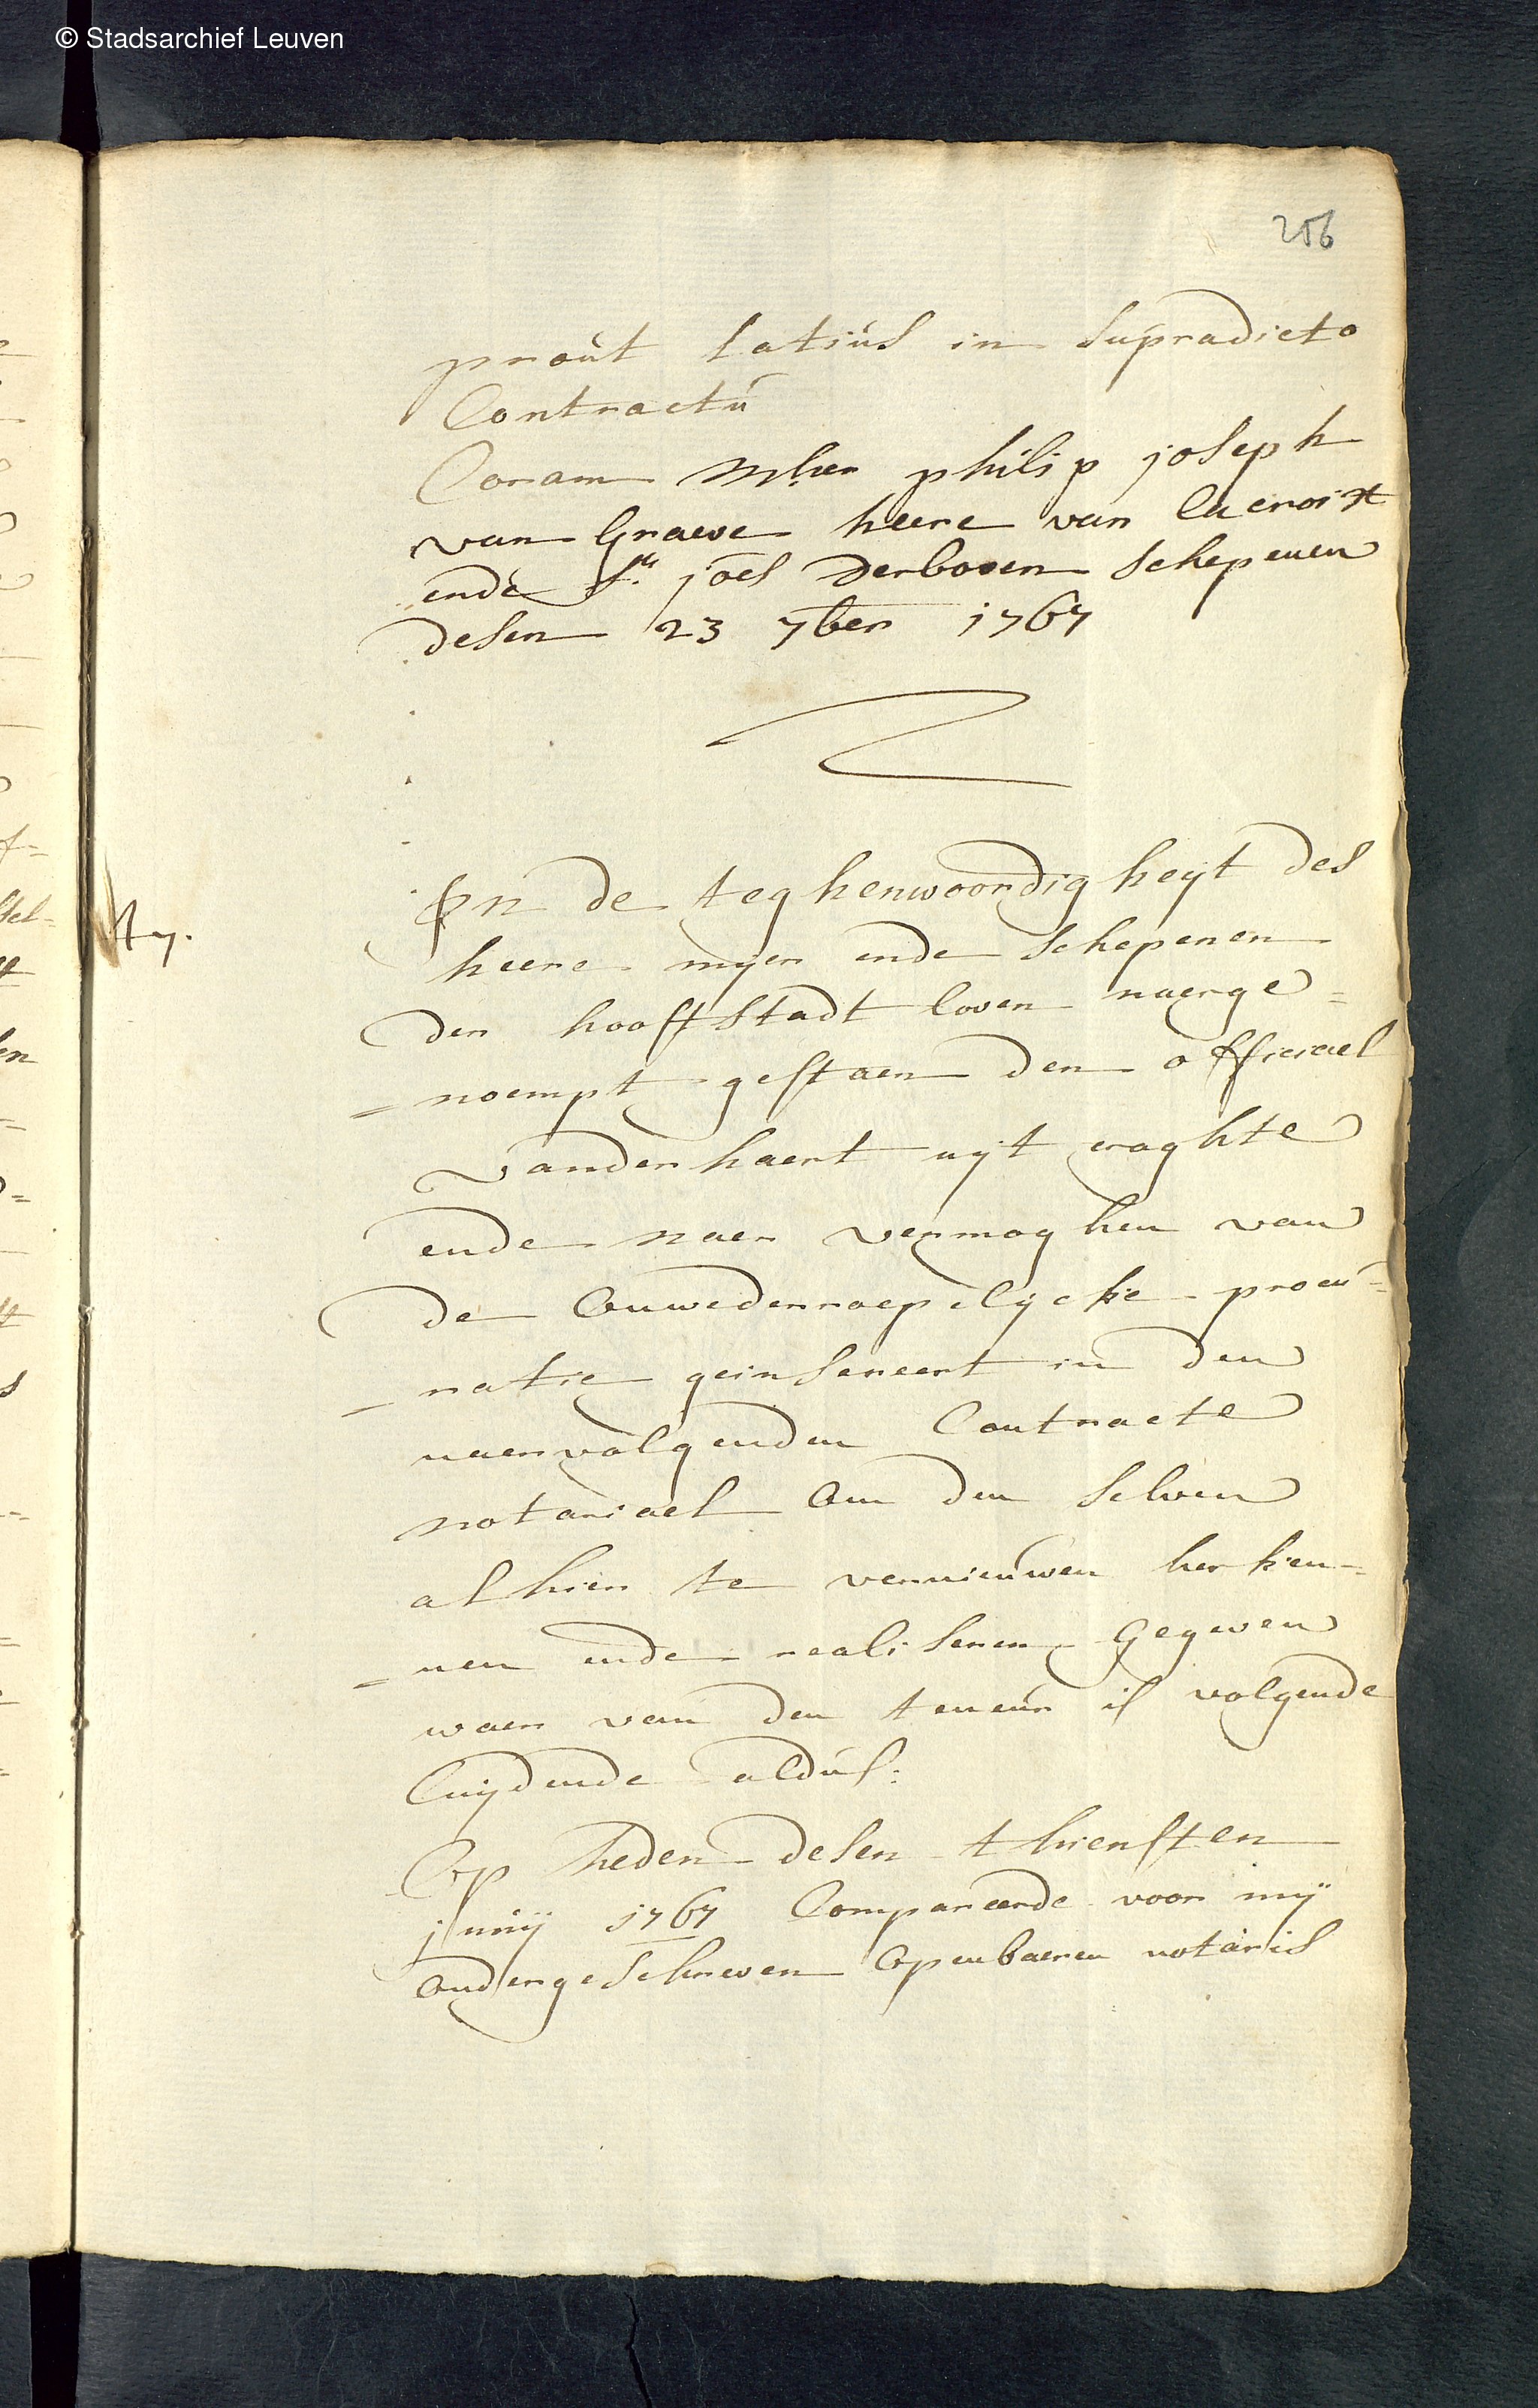 © Stadsarchief Leuven
256
proút latiús in súpradicto
Contractú
Coram Mher philip joseph
van Graeve heere van lacroix
ende Sr. joes Derboven schepenen
desen 23 7ber 1767
In de teghenwoordigheyt des
heere myer ende schepenen
der hooftstadt loven naerge=
=noempt gestaen den officiael
vanderhaert uyt craghte
ende naer vermoghen van
de Onwederroepelycke procu=
=ratie geinsereert in den
naervolgenden Contracte
notariael Om den selven
alhier te vernieúwen herken=
=nen ende realiseren Gegeven
waer van den teneúr is volgende
luydende aldús:
Op heden desen thiensten
junij 1767 Compareerde voor mij
ondergeschreven Openbaeren notaris